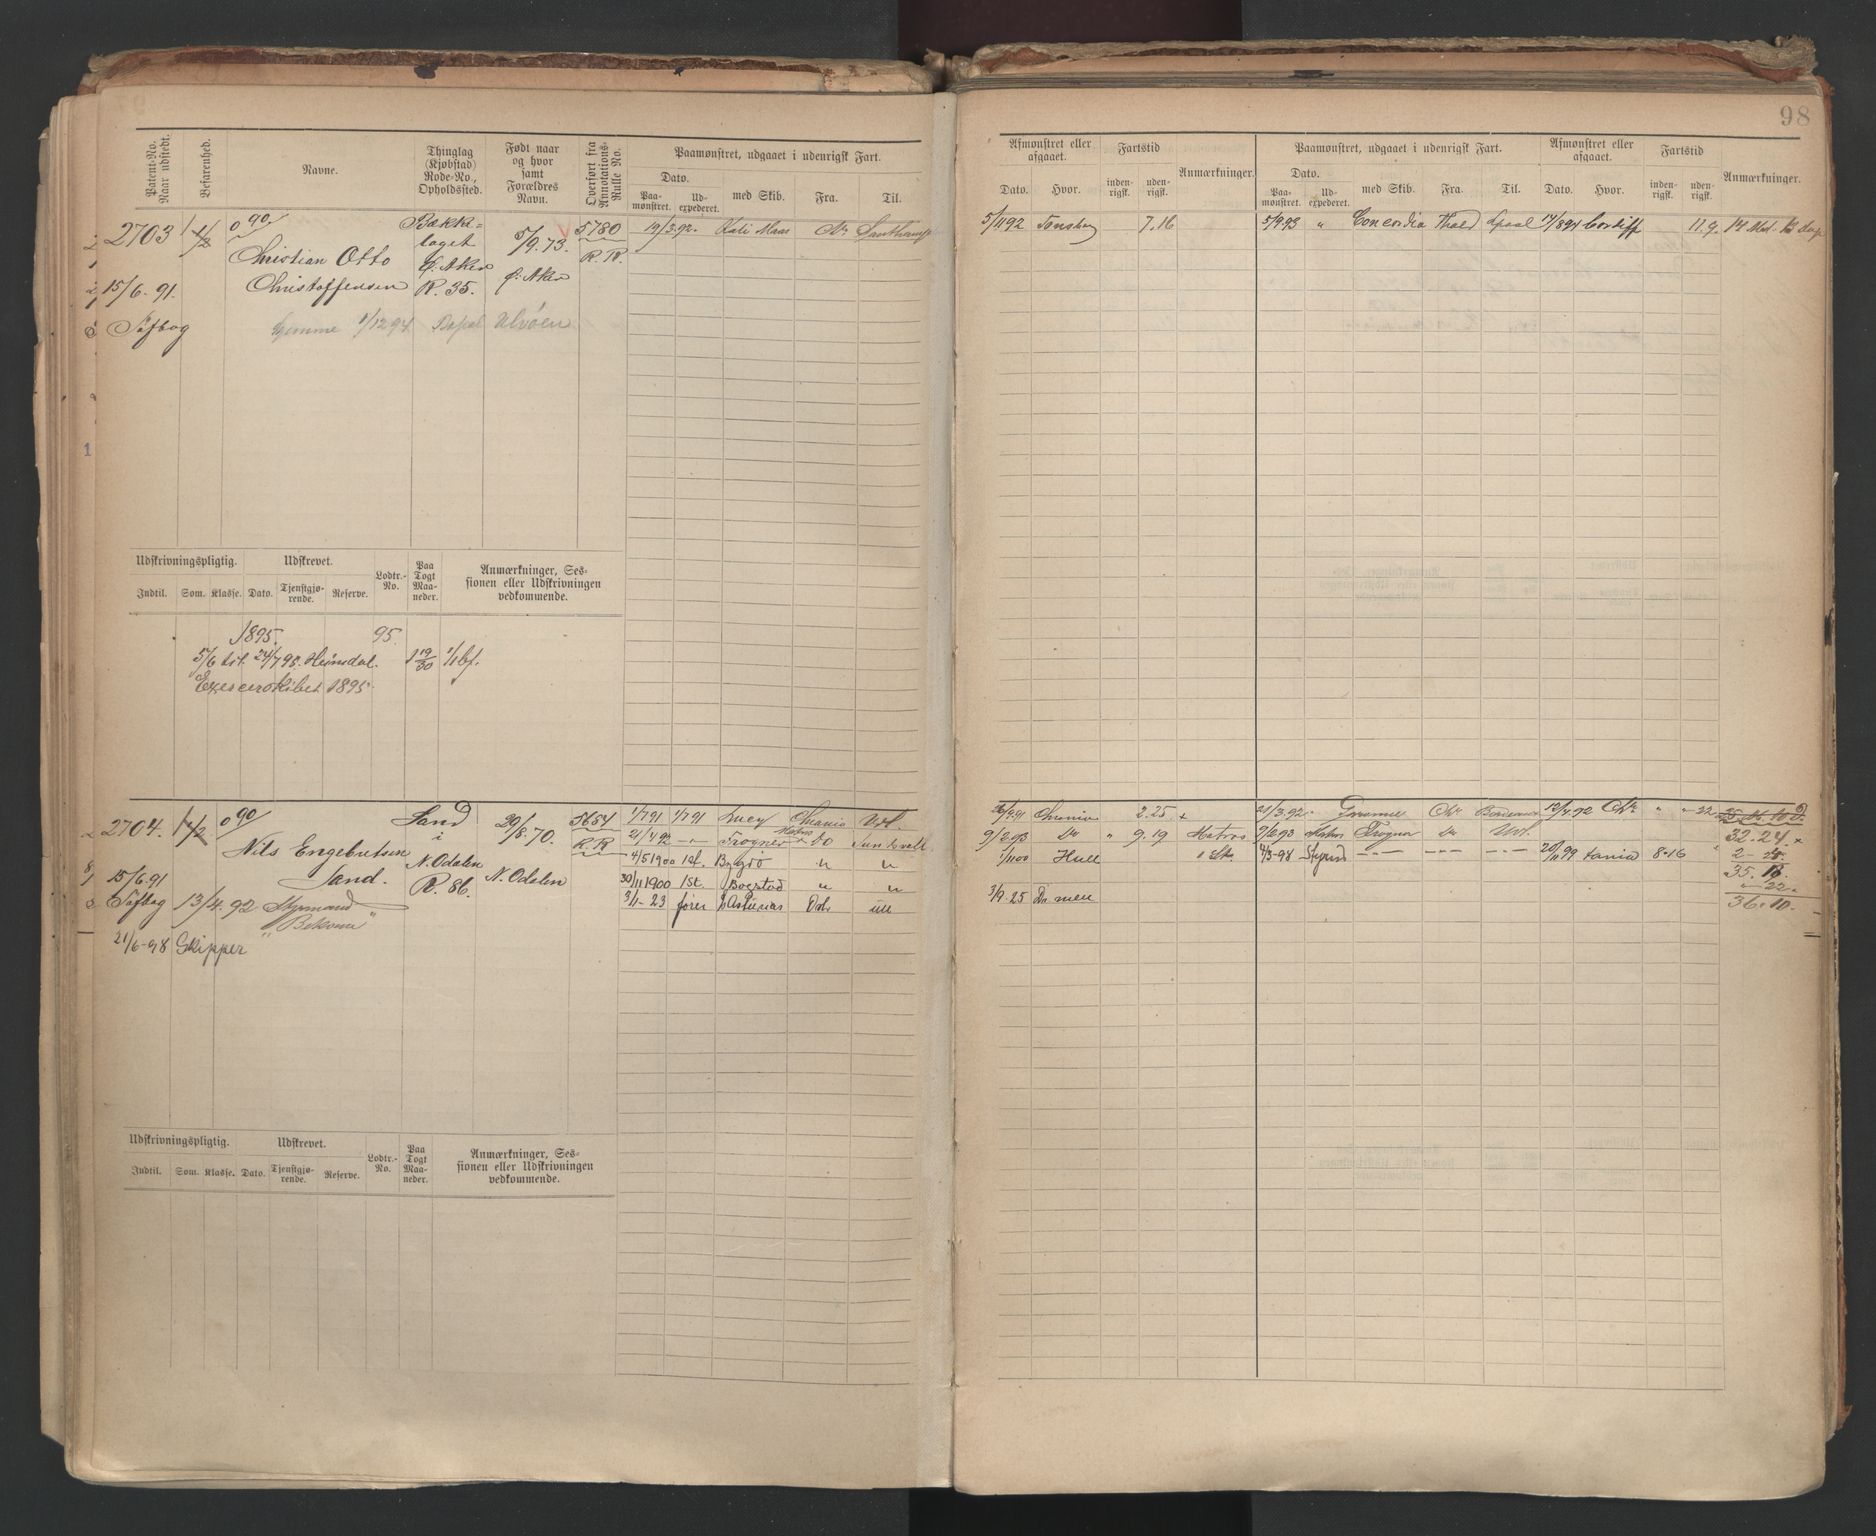 98
Patent-No. Naar udstedt.
Befarenhed.
Navne.
Thinglag (Kjøbstad) Rode-No., Opholdssted.
Født naar og hvor samt Forældres Navn.
Overført fra Annotations-Rulle No.
Paamønstret, udgaaet i udenrigsk Fart.
Dato.
Paamønstret.
Udexpederet.
med Skib.
Fra.
Til.
Afmønstret eller afgaaet.
Fartstid
Anmærkninger.
Dato.
Hvor.
indenrigsk.
udenrigsk.
Paamønstret, udgaaet i udenrigsk Fart.
Dato.
Paamønstret.
Udexpederet.
med Skib.
Fra.
Til.
Afmønstret eller afgaaet.
Dato.
Hvor.
Fartstid
indenrigsk.
udenrigsk.
Anmærkninger.
2703
0 90/
Christian Otto
Christoffersen
Bakke-
laget
Ø. Aker
R. 35.
5/9.73.
Ø. Aker
5780
R. R.
19/3.92.
Kali Maas
Chr
5/11 92 Tønsberg 7.16
5/9.93 " Concordia Thold 17/8 94 Cardiff 11.9.
15/6.91.
Søfbog
Hjemme 1/12 94 Bopæl Ulvöen
Udskrivningspligtig.
Udskrevet.
Lodtr.-No.
Paa Togt Maaneder.
Anmærkninger, Sessionen eller Udskrivningen vedkommende.
Indtil.
Som.
Klasse.
Dato.
Tjenstgjørende.
Reserve.
1895. 95.
5/6 til 24/7 95. Heimdal. 1 19/30 1/1 bf.
Exescerskibet 1895.
2704. 1 1/2
0 90/
Nils Engebretsen
Sand.
Sand
i
N. Odalen
R. 86.
29/8.70.
N. Odalen
5684
R. R.
15/6.91
Søfbog
13/4.92 Styrmand
" Bekvem "
21/6-98 Skipper
1/7 91 1/7 91 Lucy Chrania Uxl.
21/4 92 -"- Trogner do Sundsvall
4/5 1900 1st. Bygdö " "
30/11 1900 1st. Bogstad " "
3/1-23 fører Asturias
26/9.91 Chrania 2.25 x
9/2.93 Do " 9.19 Matros
1/11 00 Hull
3/9.25
21/3.92. Chr. Bordeaux 12/4.92 Chr. " " 22
Trogner Do Uxl.
4/3-98 Styrmd 20/11 99 8-16
32.24. x
35.18
" 22.
36.10.
Udskrivningspligtig.
Udskrevet.
Lodtr.-No.
Paa Togt Maaneder.
Anmærkninger, Sessionen eller Udskrivningen vedkommende.
Indtil.
Som.
Klasse.
Dato.
Tjenstgjørende.
Reserve.